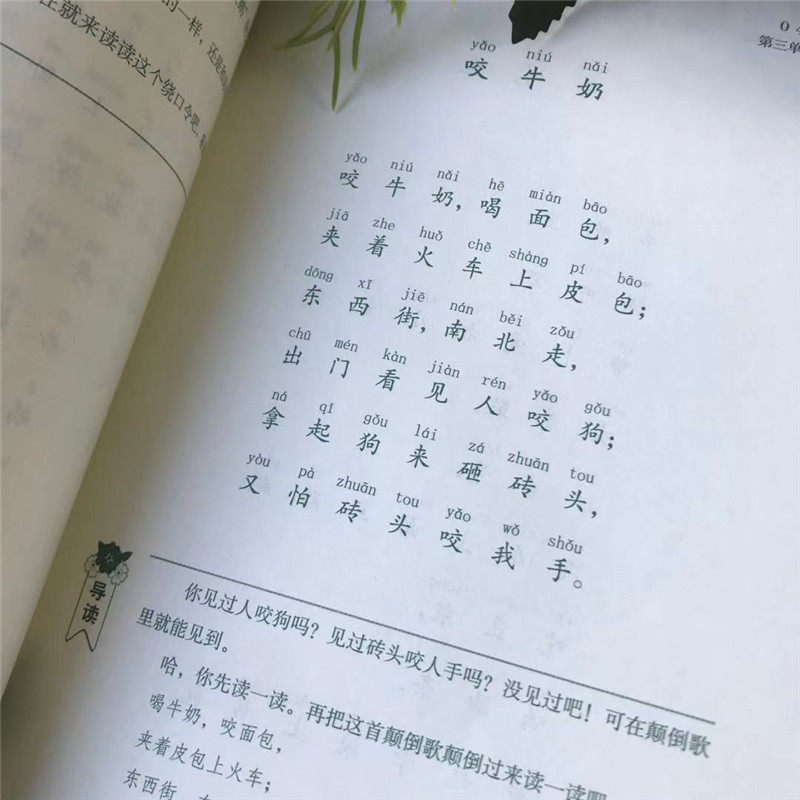 的一样,还是
在就来读读这个绕口令吧,
04
第三单
yǎo niú nǎi
咬牛奶
yǎo niú nǎi hē miàn bāo
咬牛奶,喝面包,
jiā zhe huǒ chē shàng pí bāo
夹着火车上皮包;
dōng xī jiē nán běi zǒu
东西街,南北走,
chū mén kàn jiàn rén yǎo gǒu
出门看见人咬狗;
ná qǐ gǒu lái zá zhuān tou
拿起狗来砸砖头,
yòu pà zhuān tou yǎo wǒ shǒu
又怕砖头咬我手。
导读
你见过人咬狗吗?见过砖头咬人手吗?没见过吧!可在颠倒歌
里就能见到。
哈,你先读一读。再把这首颠倒歌颠倒过来读一读吧
喝牛奶,咬面包,
夹着皮包上火车;
东西街,